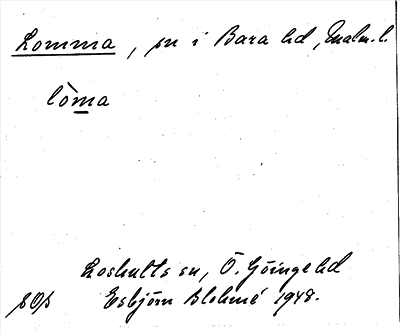 Lomma, sn i Bara hd, Malm. l.
lòma
Loshults sn, Ö. Göinge hd
sOs Esbjörn Blohmé 1948.